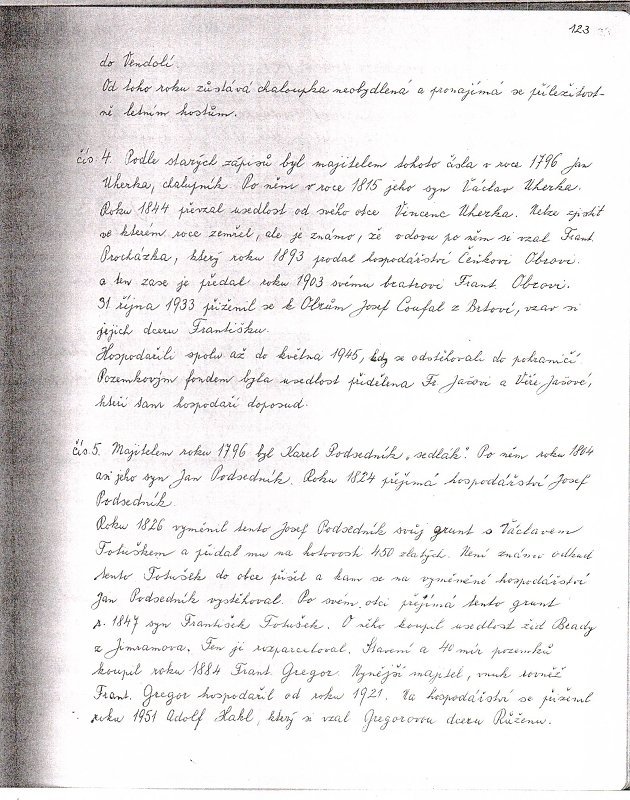 123
do Vendolí.
Od toho roku zůstává chaloupka neobydlená a pronajímá se příležitost-
ně letním hostům.
čís. 4. Podle starých zápisů byl majitelem tohoto čísla v roce 1796 Jan
Uherka, chalupník. Po něm v roce 1815 jeho syn Václav Uherka.
Roku 1844 převzal usedlost od svého otce Vincenc Uherka. Nelze zjistit
ve kterém roce zemřel, ale je známo, že vdovu po něm si vzal Frant.
Procházka, který roku 1893 prodal hospodářství Čeňkovi Obrovi.
a ten zase je předal roku 1903 svému bratrovi Frant. Obrovi.
31 října 1933 přiženil se k Obrům Josef Coufal z Brtoví, vzav si
jejich dceru Františku.
Hospodařili spolu až do května 1945, kdy se odstěhovali do pohraničí
Pozemkovým fondem byla usedlost přidělena Fr. Jašovi a Věře Jašové,
kteří tam hospodaří doposud.
čís. 5. Majitelem roku 1796 byl Karel Podsedník „sedlák". Po něm roku 1804
asi jeho syn Jan Podsedník. Roku 1824 přejímá hospodářství Josef
Podsedník.
Roku 1826 vyměnil tento Josef Podsedník svůj grunt s Václavem
Totuškem a přidal mu na hotovosti 450 zlatých. Není známo odkud
tento Totušek do obce přišel a kam se na vyměněné hospodářství
Jan Podsedník vystěhoval. Po svém otci přejímá tento grunt
r. 1847 syn František Totušek. O něho koupil usedlost žid Brady
z Jimramova. Ten ji rozparceloval. Stavení a 40 měr pozemků
koupil roku 1884 Frant. Gregor. Nynější majitel, vnuk rovněž
Frant. Gregor hospodařil od roku 1921. Na hospodářství se přiženil
roku 1951 Adolf Hakl, který si vzal Gregorovou dceru Růženu.